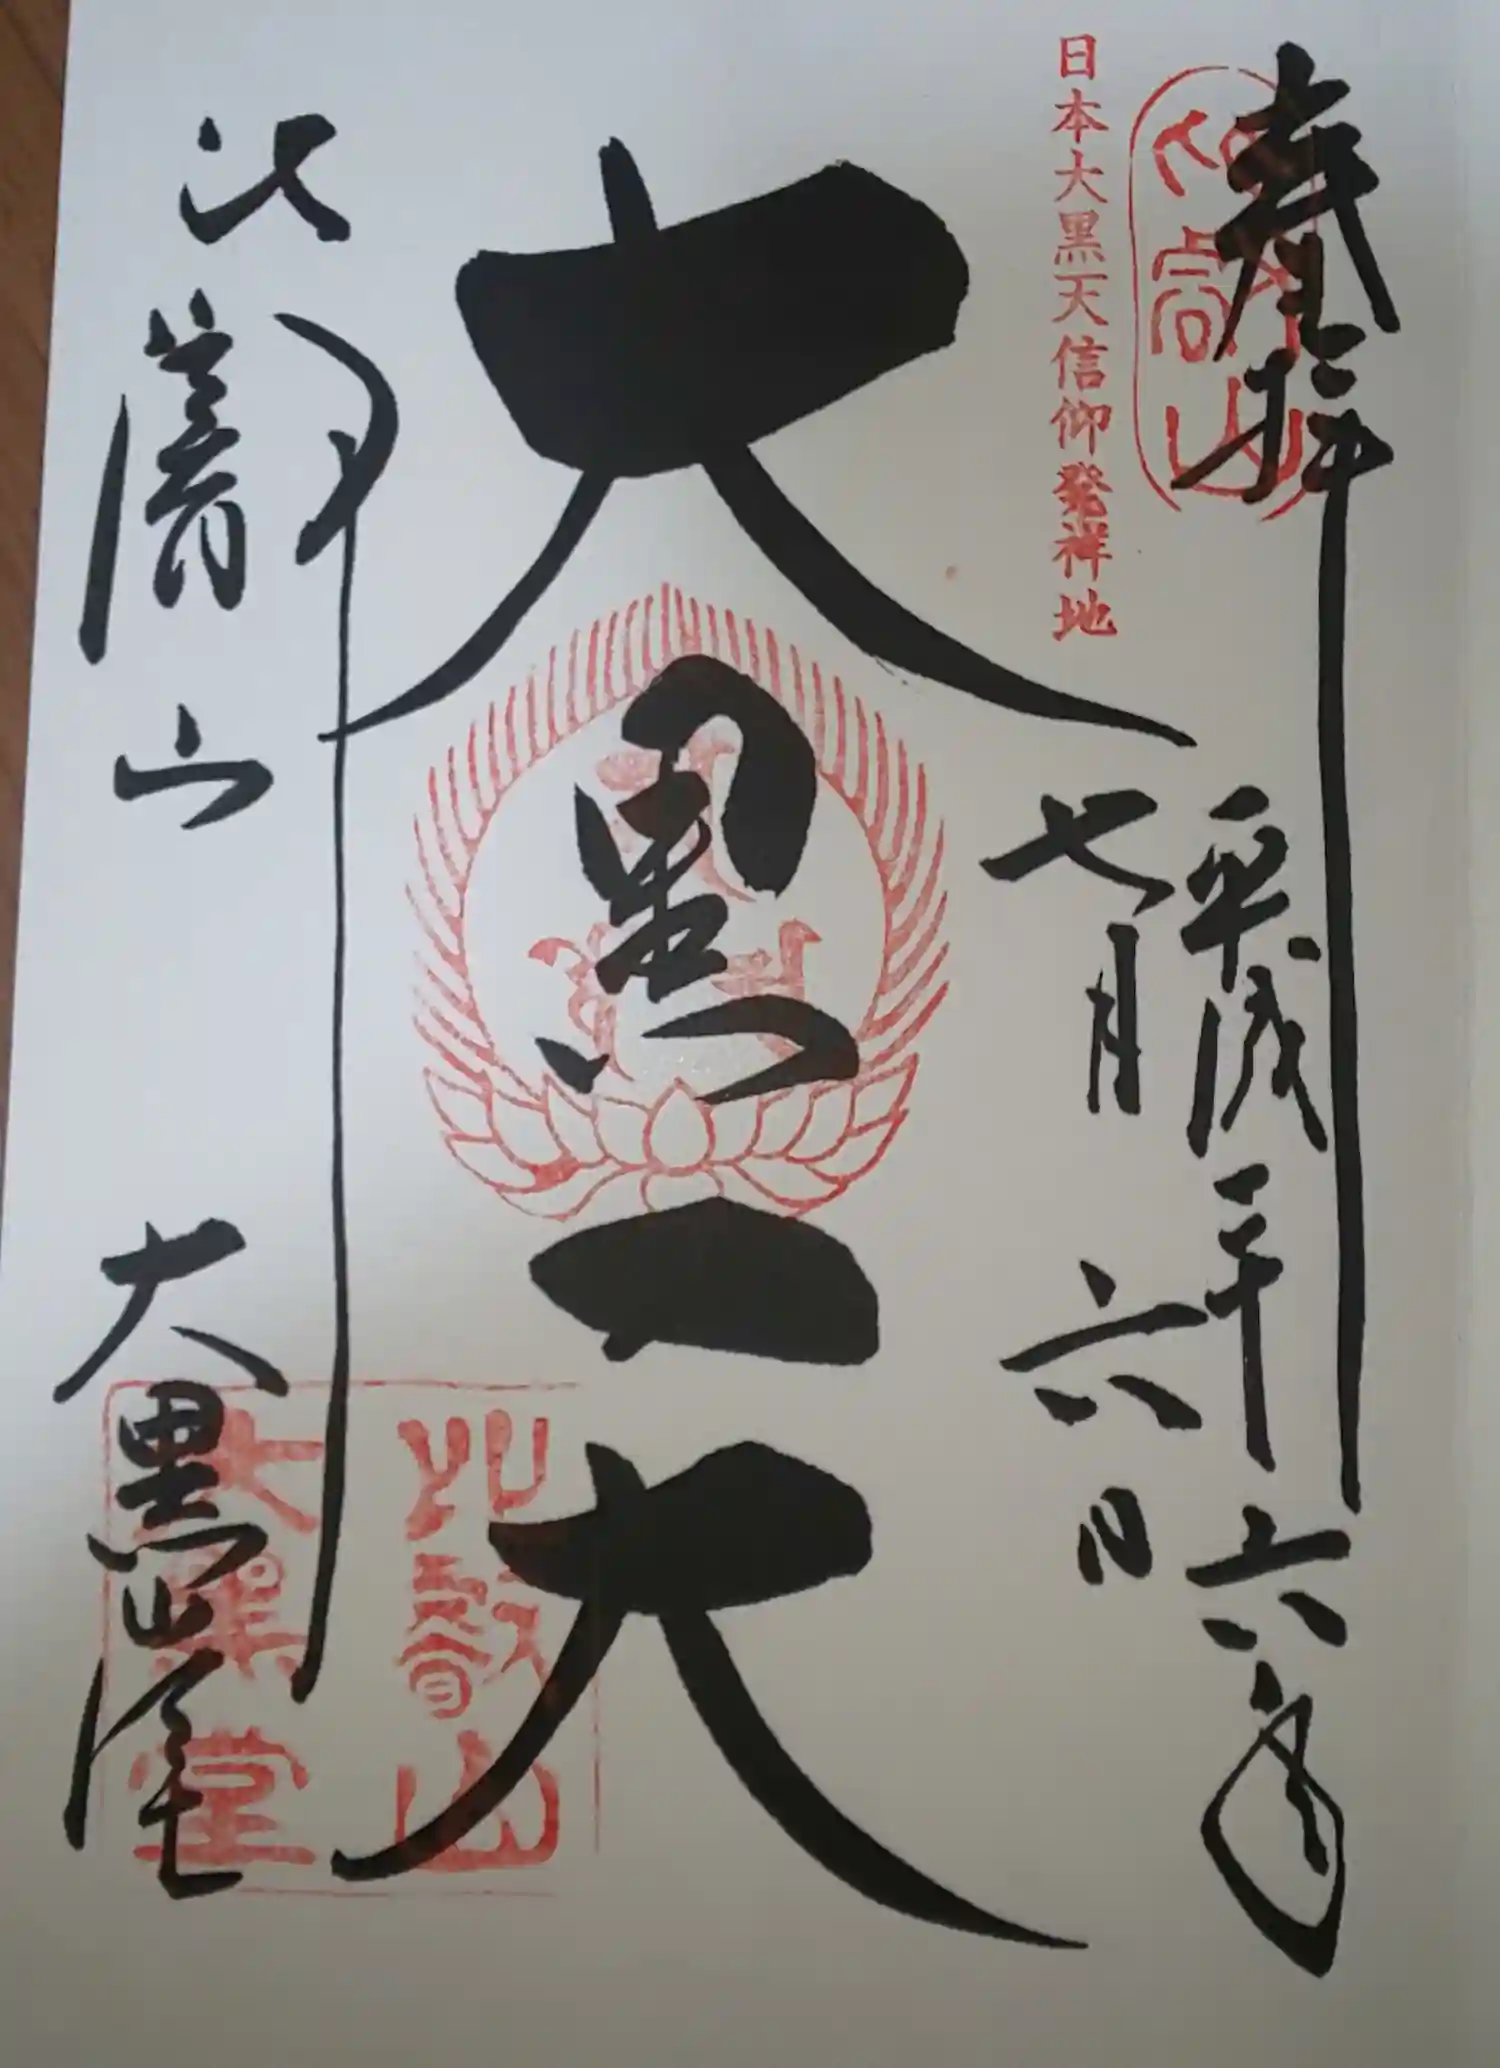 奉拝
比叡山
平成二十六年
七月六日
日本大黒天信仰発祥地
大黒天
比叡山
大黒堂
比叡山
大黒堂